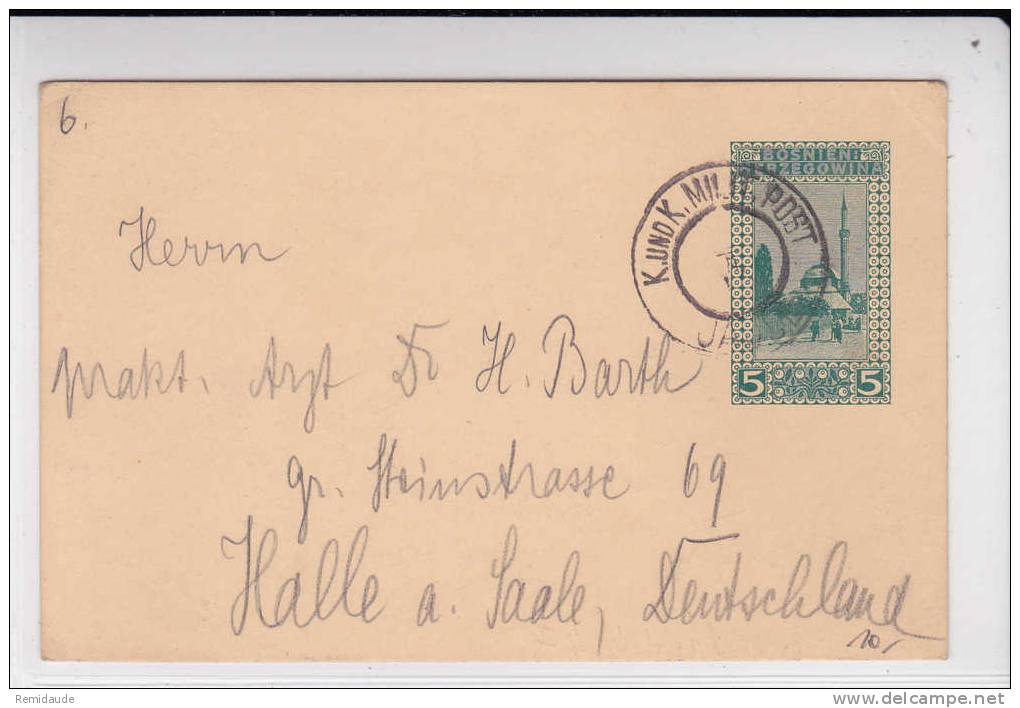 6.
BOSNIEN-
HERZEGOWINA
K. UND K. MILIT. POST
5 5
Herrn
prakt. Arzt Dr H. Barth
gr. Steinstrasse 69
Halle a. Saale, Deutschland
10,
Remidaude
www.delcampe.net